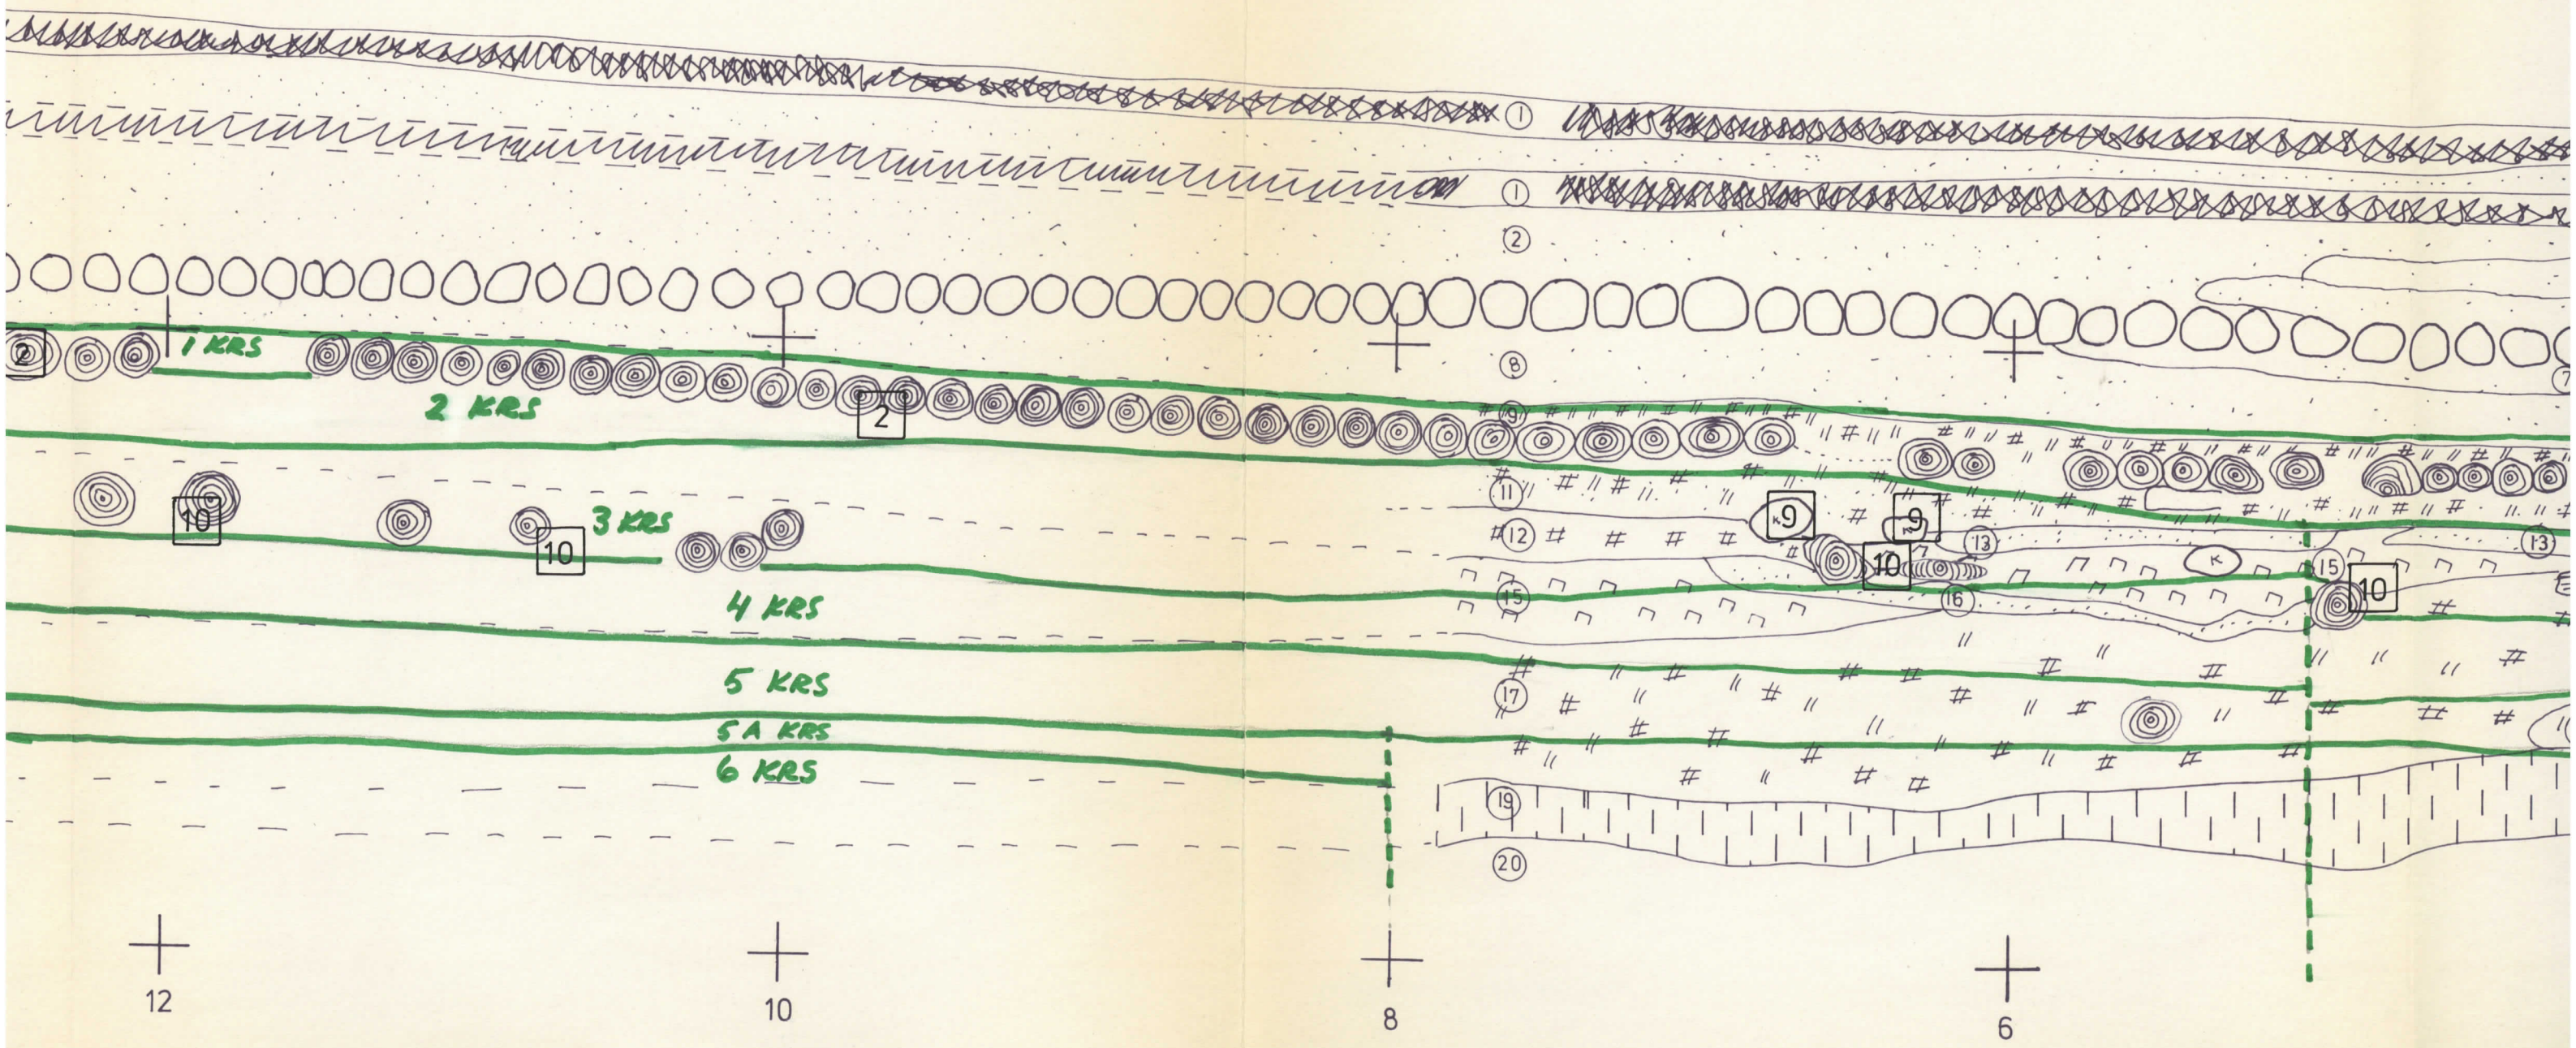 1
1
2
8
7
2
1 KRS
2 KRS
2
9
11
9
9
10
3 KRS
10
12
13
13
10
15
10
15
16
K
4 KRS
5 KRS
17
5 A KRS
6 KRS
19
20
12
10
8
6